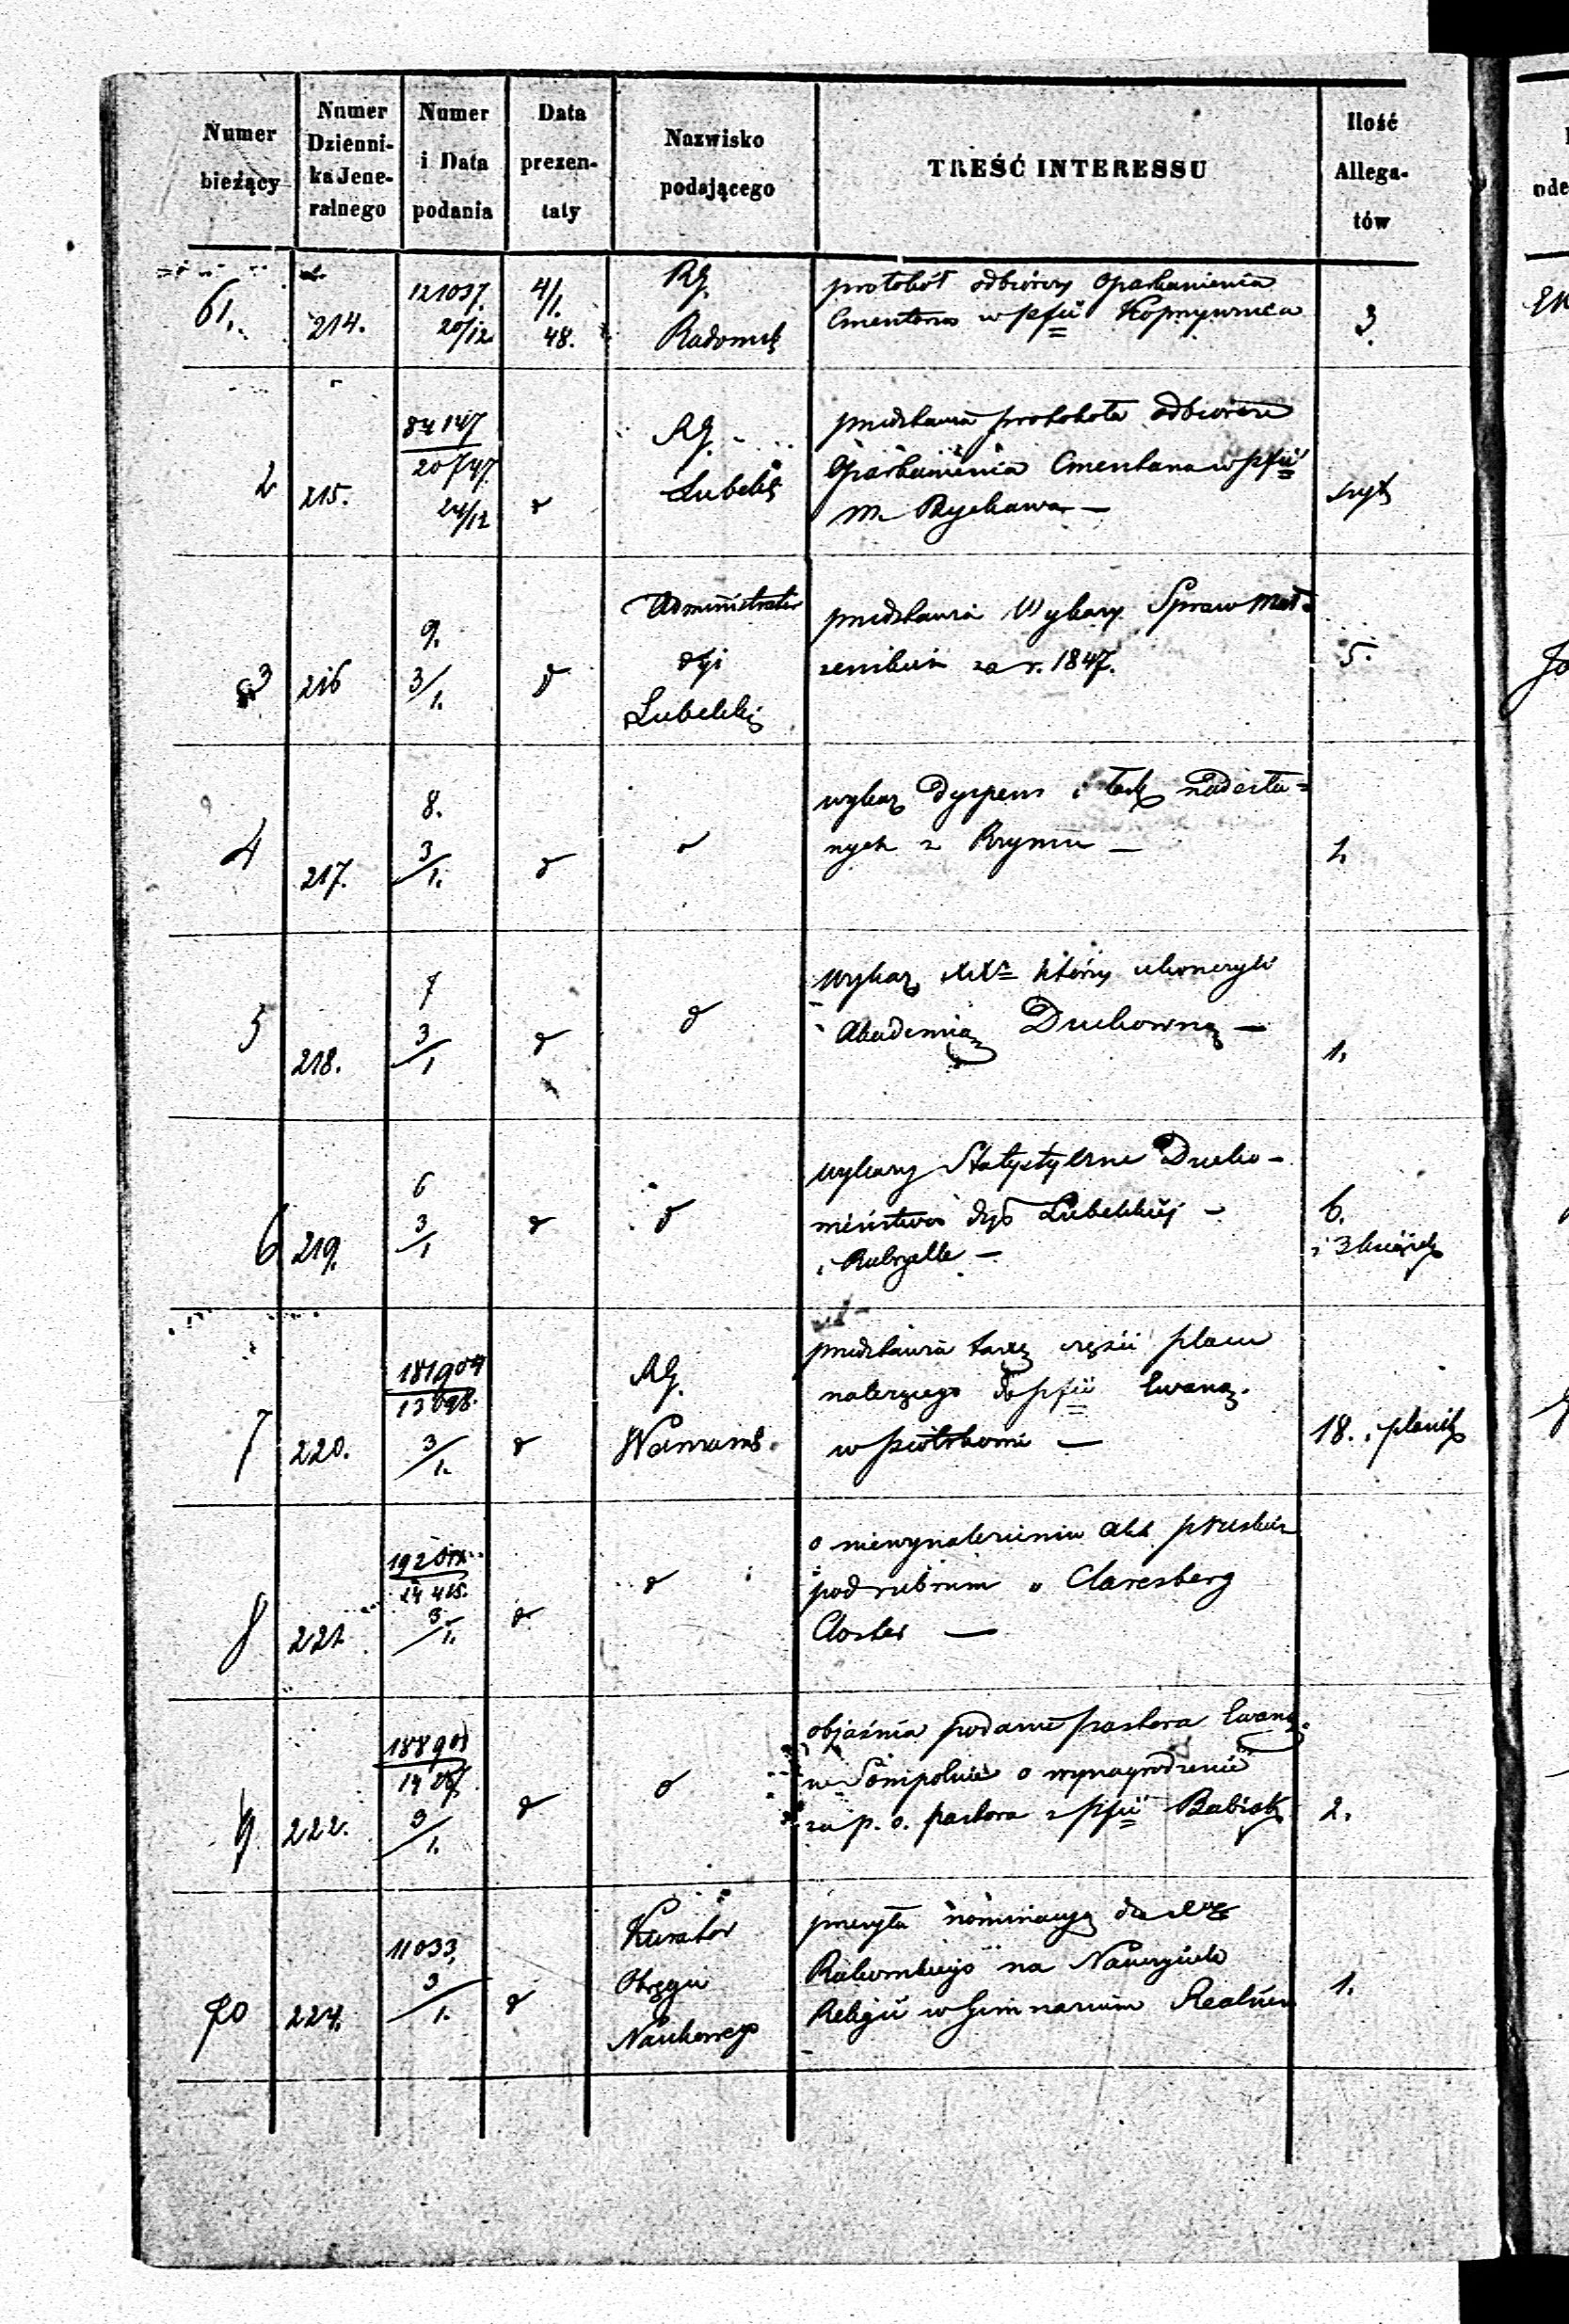 Numer bieżący
Numer Dzienni-ka Jene-ralnego
Numer i Data podania
Data prezen-taty
Nazwisko podającego
TREŚĆ INTERESSU
Ilość Allega-tów
61. 214. 121037. 20/12 4/1. 48. RG. Radomsk
protokół odbiorczy oparkanienia
Cmentarza w pfii Koprzywnica
3.
2 215. 84147 20747. 24/12 d RG. Lubelsk
przedstawia protokoła odbiorcze
Oparkanienia Cmentarza w pfii
m. Bychawa —
szyt
3 216 9. 3/1. d Administrator dyi Lubelskij
przedstawia Wykazy Spraw Mał=
zenskich za r. 1847.
5.
4 217. 8. 3/1. d d
wykaz Dyspens i task nadesła=
nych z Rzymu —
1.
5 218. 7 3/1 d d
wykaz XX którzy ukonczyli
Akademią Duchowną —
1.
6 219. 6 3/1 d d
wykazy Statystyczne Ducho-
wieństwa dyi Lubelskiéj —
i Rubrycelle —
6.
i 3 książek
7 220. 181904 13698. 3/1. d RG. Warszaws.
przedstawia taxę części placu
należącego do pfii Ewang.
w Piotrkowie —
18. i planik
8 221 3/1. d d
o niewynalezieniu akt pruskich
pod rubrum " Claresberg
Closter —
9 222. 3/1. d d
objaśnia podanie pastora Ewang.
w Sompolnie o wynagrodzenie
za p. o. pastora z pfii Babiak
2.
70 224. 11033. 3/1. d Kurator Okręgu Naukowego
przesyła nominacyą dla
na Nauczyciela
Religii w Gimnazium Realnem
1.